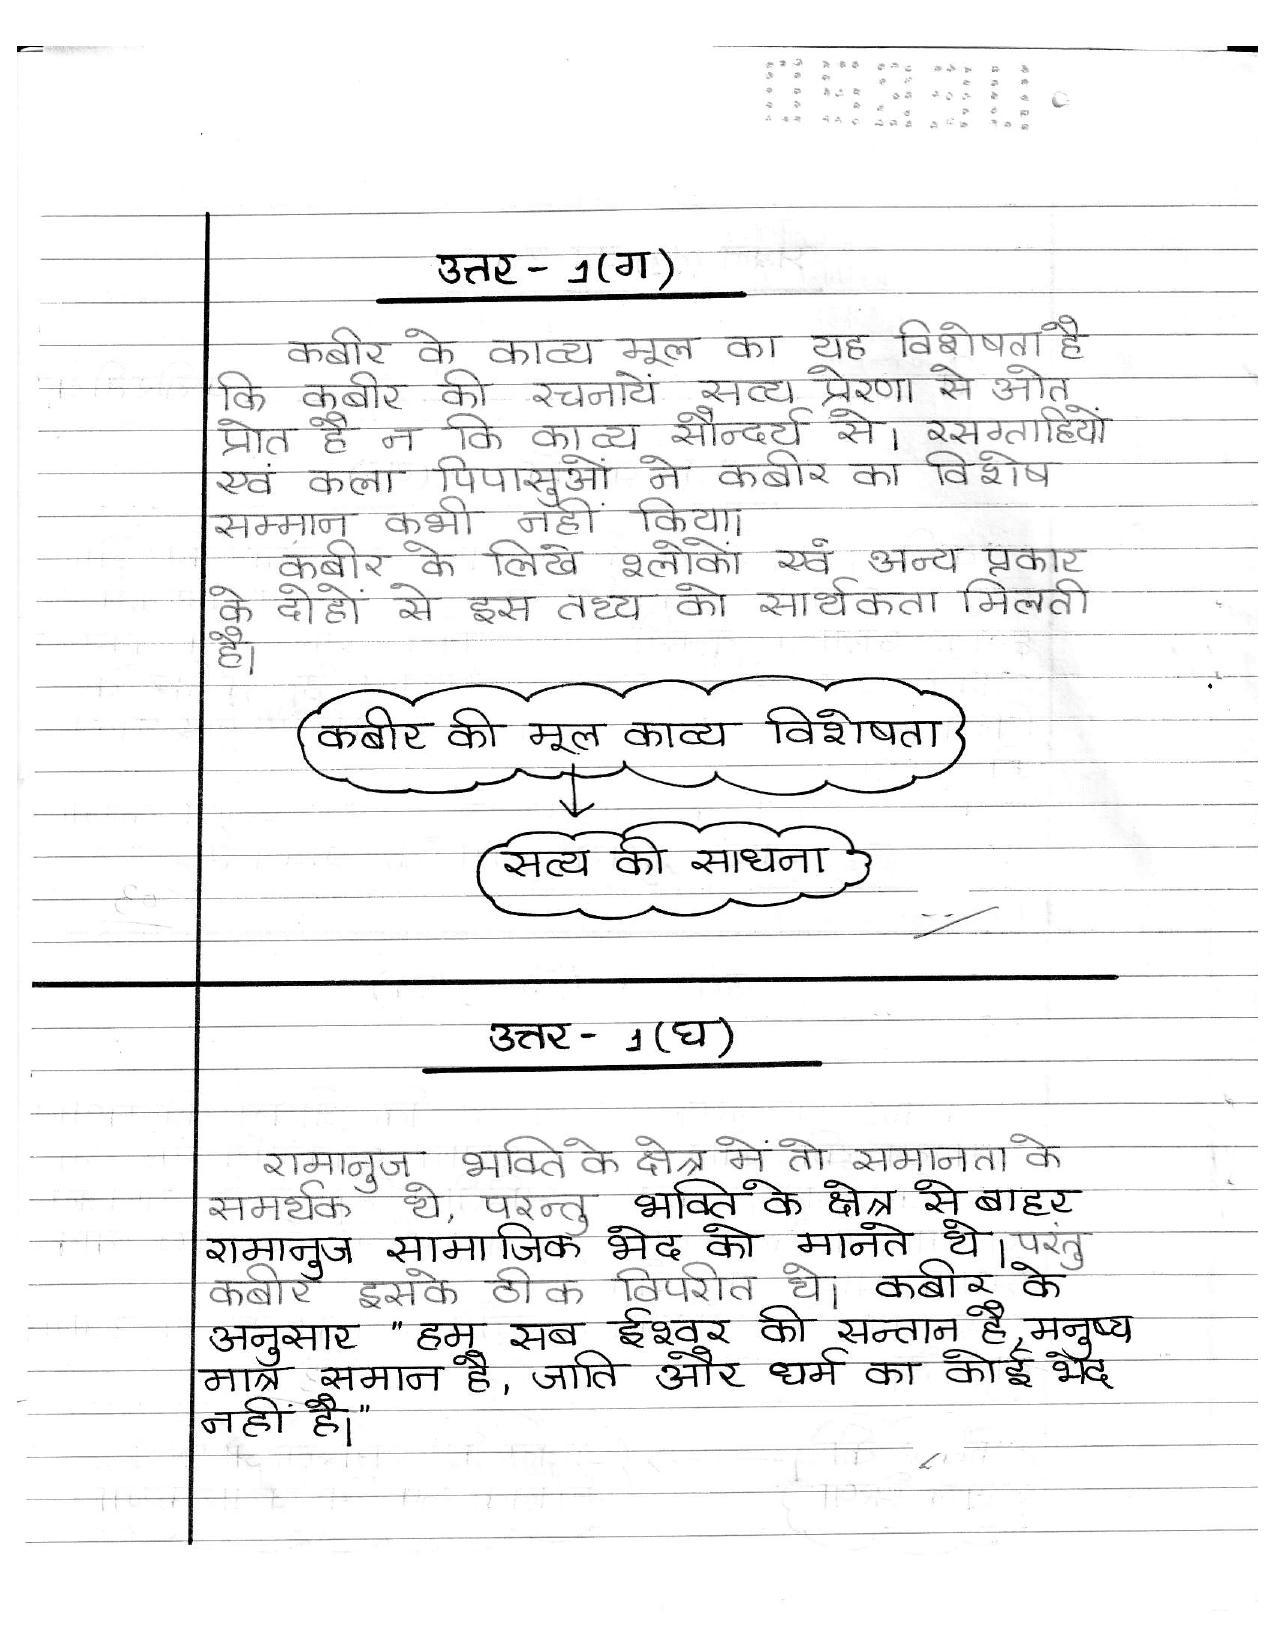 उत्तर - 1(ग)
कबीर के काव्य मूल का यह विशेषता है
कि कबीर की रचनायें सत्य प्रेरणा से ओत
प्रोत है न कि काव्य सौन्दर्य से। रसग्ताहियों
एवं कला पिपासुओं ने कबीर का विशेष
सम्मान कभी नहीं किया।
कबीर के लिखे श्लोकों एवं अन्य प्रकार
के दोहों से इस तथ्य को सार्थकता मिलती
है।
कबीर की मूल काव्य विशेषता
सत्य की साधना
उत्तर - 1(घ)
रामानुज भक्ति के क्षेत्र में तो समानता के
समर्थक थे, परन्तु भक्ति के क्षेत्र से बाहर
रामानुज सामाजिक भेद को मानते थे। परंतु
कबीर इसके ठीक विपरीत थे। कबीर के
अनुसार "हम सब ईश्वर की सन्तान है, मनुष्य
मात्र समान है, जाति और धर्म का कोई भेद
नहीं है।"